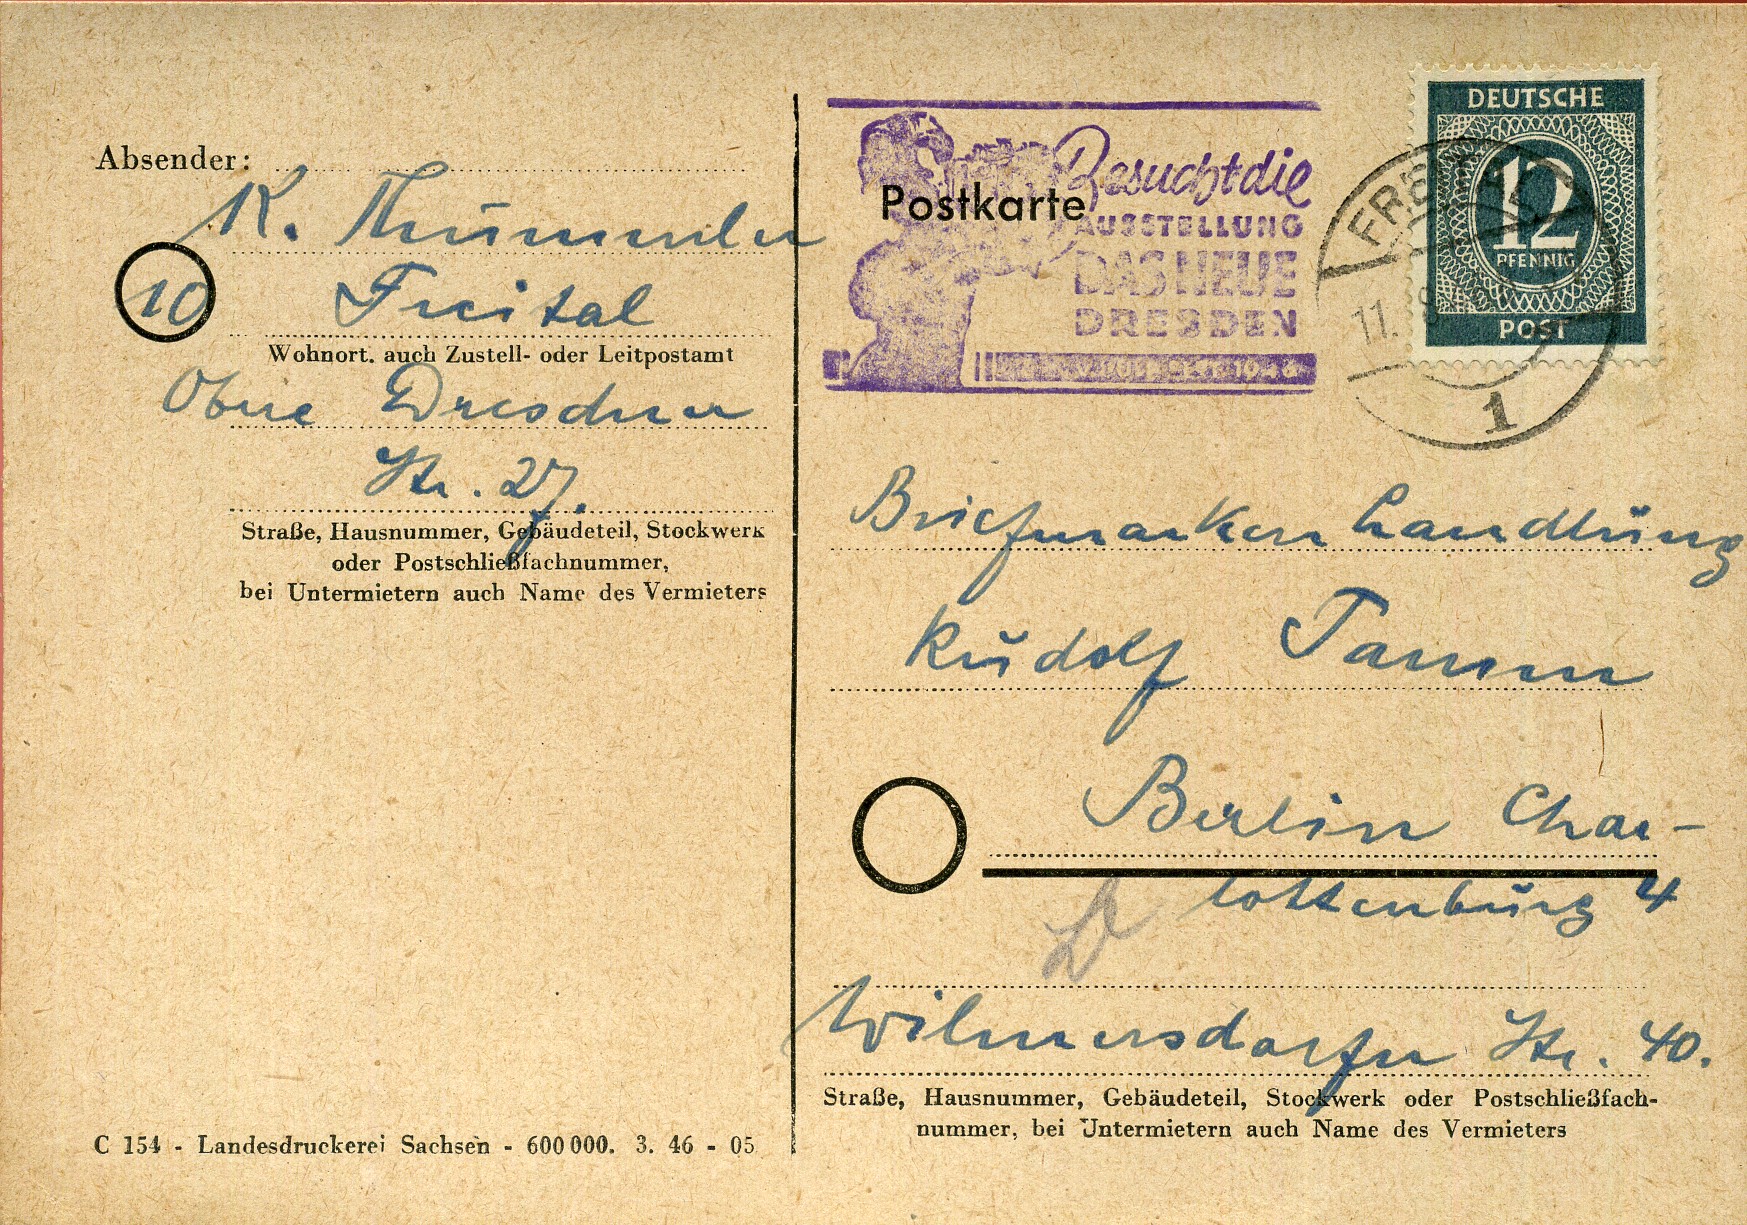 Absender:
K. Thümmler
10 Freital
Wohnort, auch Zustell- oder Leitpostamt
Obere Dresdner
Str. 27.
Straße, Hausnummer, Gebäudeteil, Stockwerk
oder Postschließfachnummer,
bei Untermietern auch Name des Vermieters
C 154 - Landesdruckerei Sachsen - 600 000. 3. 46 - 05
Postkarte
Besucht die
AUSSTELLUNG
DAS NEUE
DRESDEN
DEUTSCHE
12
PFENNIG
POST
FREITAL
11. 8
1
Briefmarkenhandlung
Rudolf Tamm
Berlin Char-
lottenburg 4
Wilmersdorfer Str. 40.
Straße, Hausnummer, Gebäudeteil, Stockwerk oder Postschließfach-
nummer, bei Untermietern auch Name des Vermieters